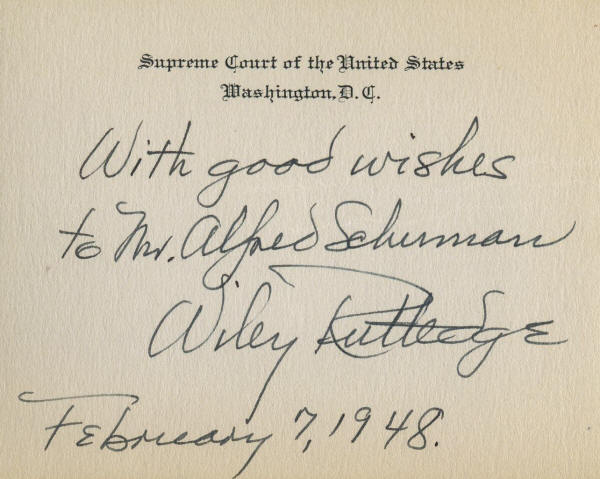 Supreme Court of the United States
Washington, D. C.
With good wishes
to Mr. Alfred Schurman
Wiley Rutledge
February 7, 1948.